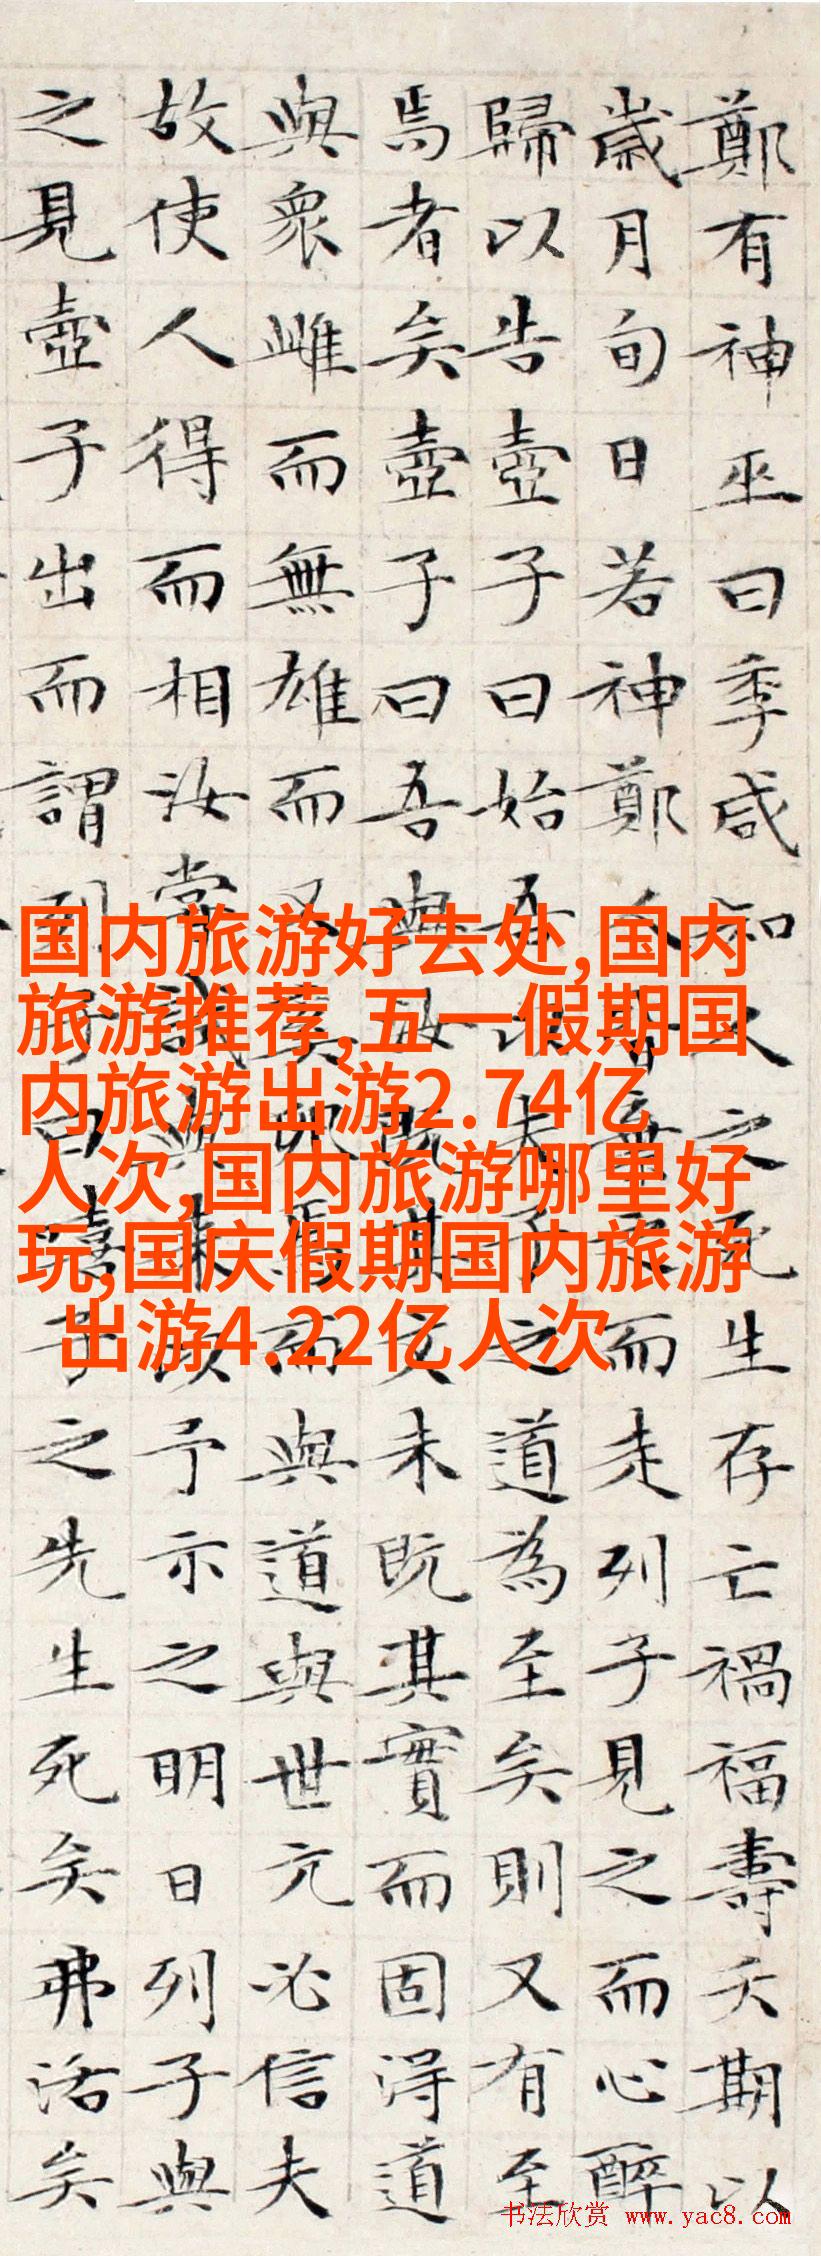 鄭有神巫曰季咸知人之死生存亡禍福壽夭期以
歲月旬日若神鄭人皆棄而走列子見之而心醉
歸以告壺子曰始吾以夫子之道為至矣則又有至
焉者矣壺子曰吾與汝既其文未既其實而固得道
與衆雌而無雄而又奚卵焉而與道與世亢必信夫
故使人得而相汝嘗試與來以予示之明日列子與
之見壺子出而謂列子曰嘻子之先生死矣弗活矣
国内旅游好去处,国内
旅游推荐,五一假期国
内旅游出游2.74亿
人次,国内旅游哪里好
玩,国庆假期国内旅游
出游4.22亿人次
书法欣赏 www.yac8.com